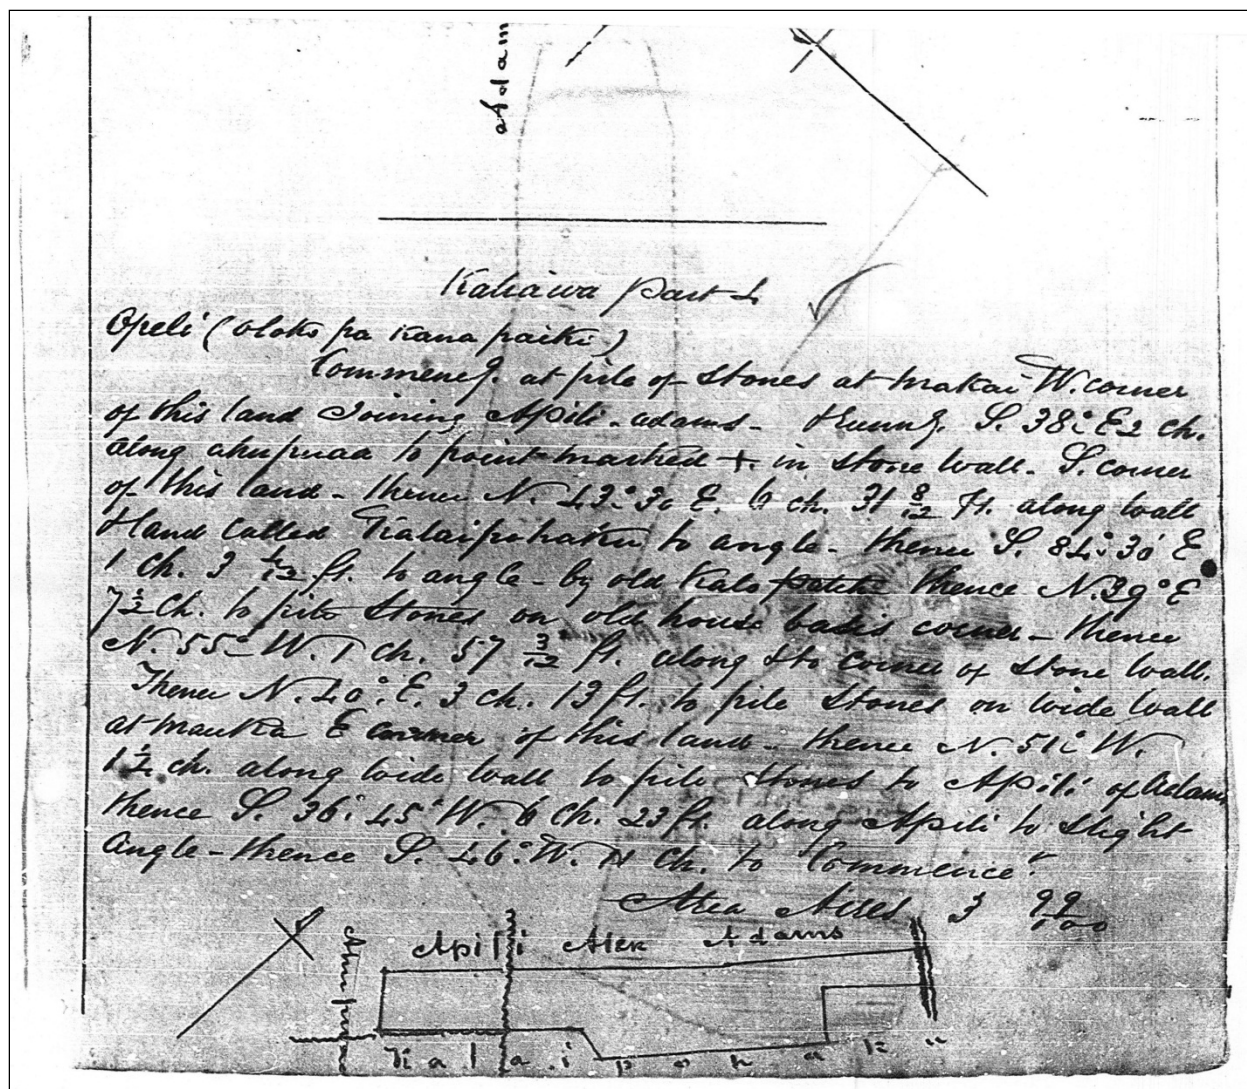 Adam
Kahawa Part 4
Apeli (oloko pa Kana paiki)
Commencg. at pile of stones at makai W. corner
of this land Joining Apili - Adams - Runng. S. 38° E 2 ch.
along ahupuaa to point marked +. in stone wall. S. corner
of this land - thence N. 43° 30 E. 6 ch. 31 8/12 ft. along wall
& land called Kalaipohaku to angle - thence S. 84° 30' E
1 ch. 3 4/12 ft. to angle - by old Kalo patch thence N. 39° E
7 1/2 Ch. to pile stones on old house corner - thence
N. 55° W. 1 ch. 57 3/12 ft. along to corner of stone wall.
Thence N. 40° E. 3 ch. 13 ft. to pile stones on wide wall
at mauka E corner of this land - thence N. 51° W.
1 1/2 ch. along wide wall to pile stones to Apili of Adams
thence S. 36° 45' W. 6 Ch. 23 ft. along Apili to slight
angle - thence S. 46° W. 11 ch. to Commence.
Area Acres 3 99/100
Apili Alex Adams
Ahupuaa
Kalaipohaku